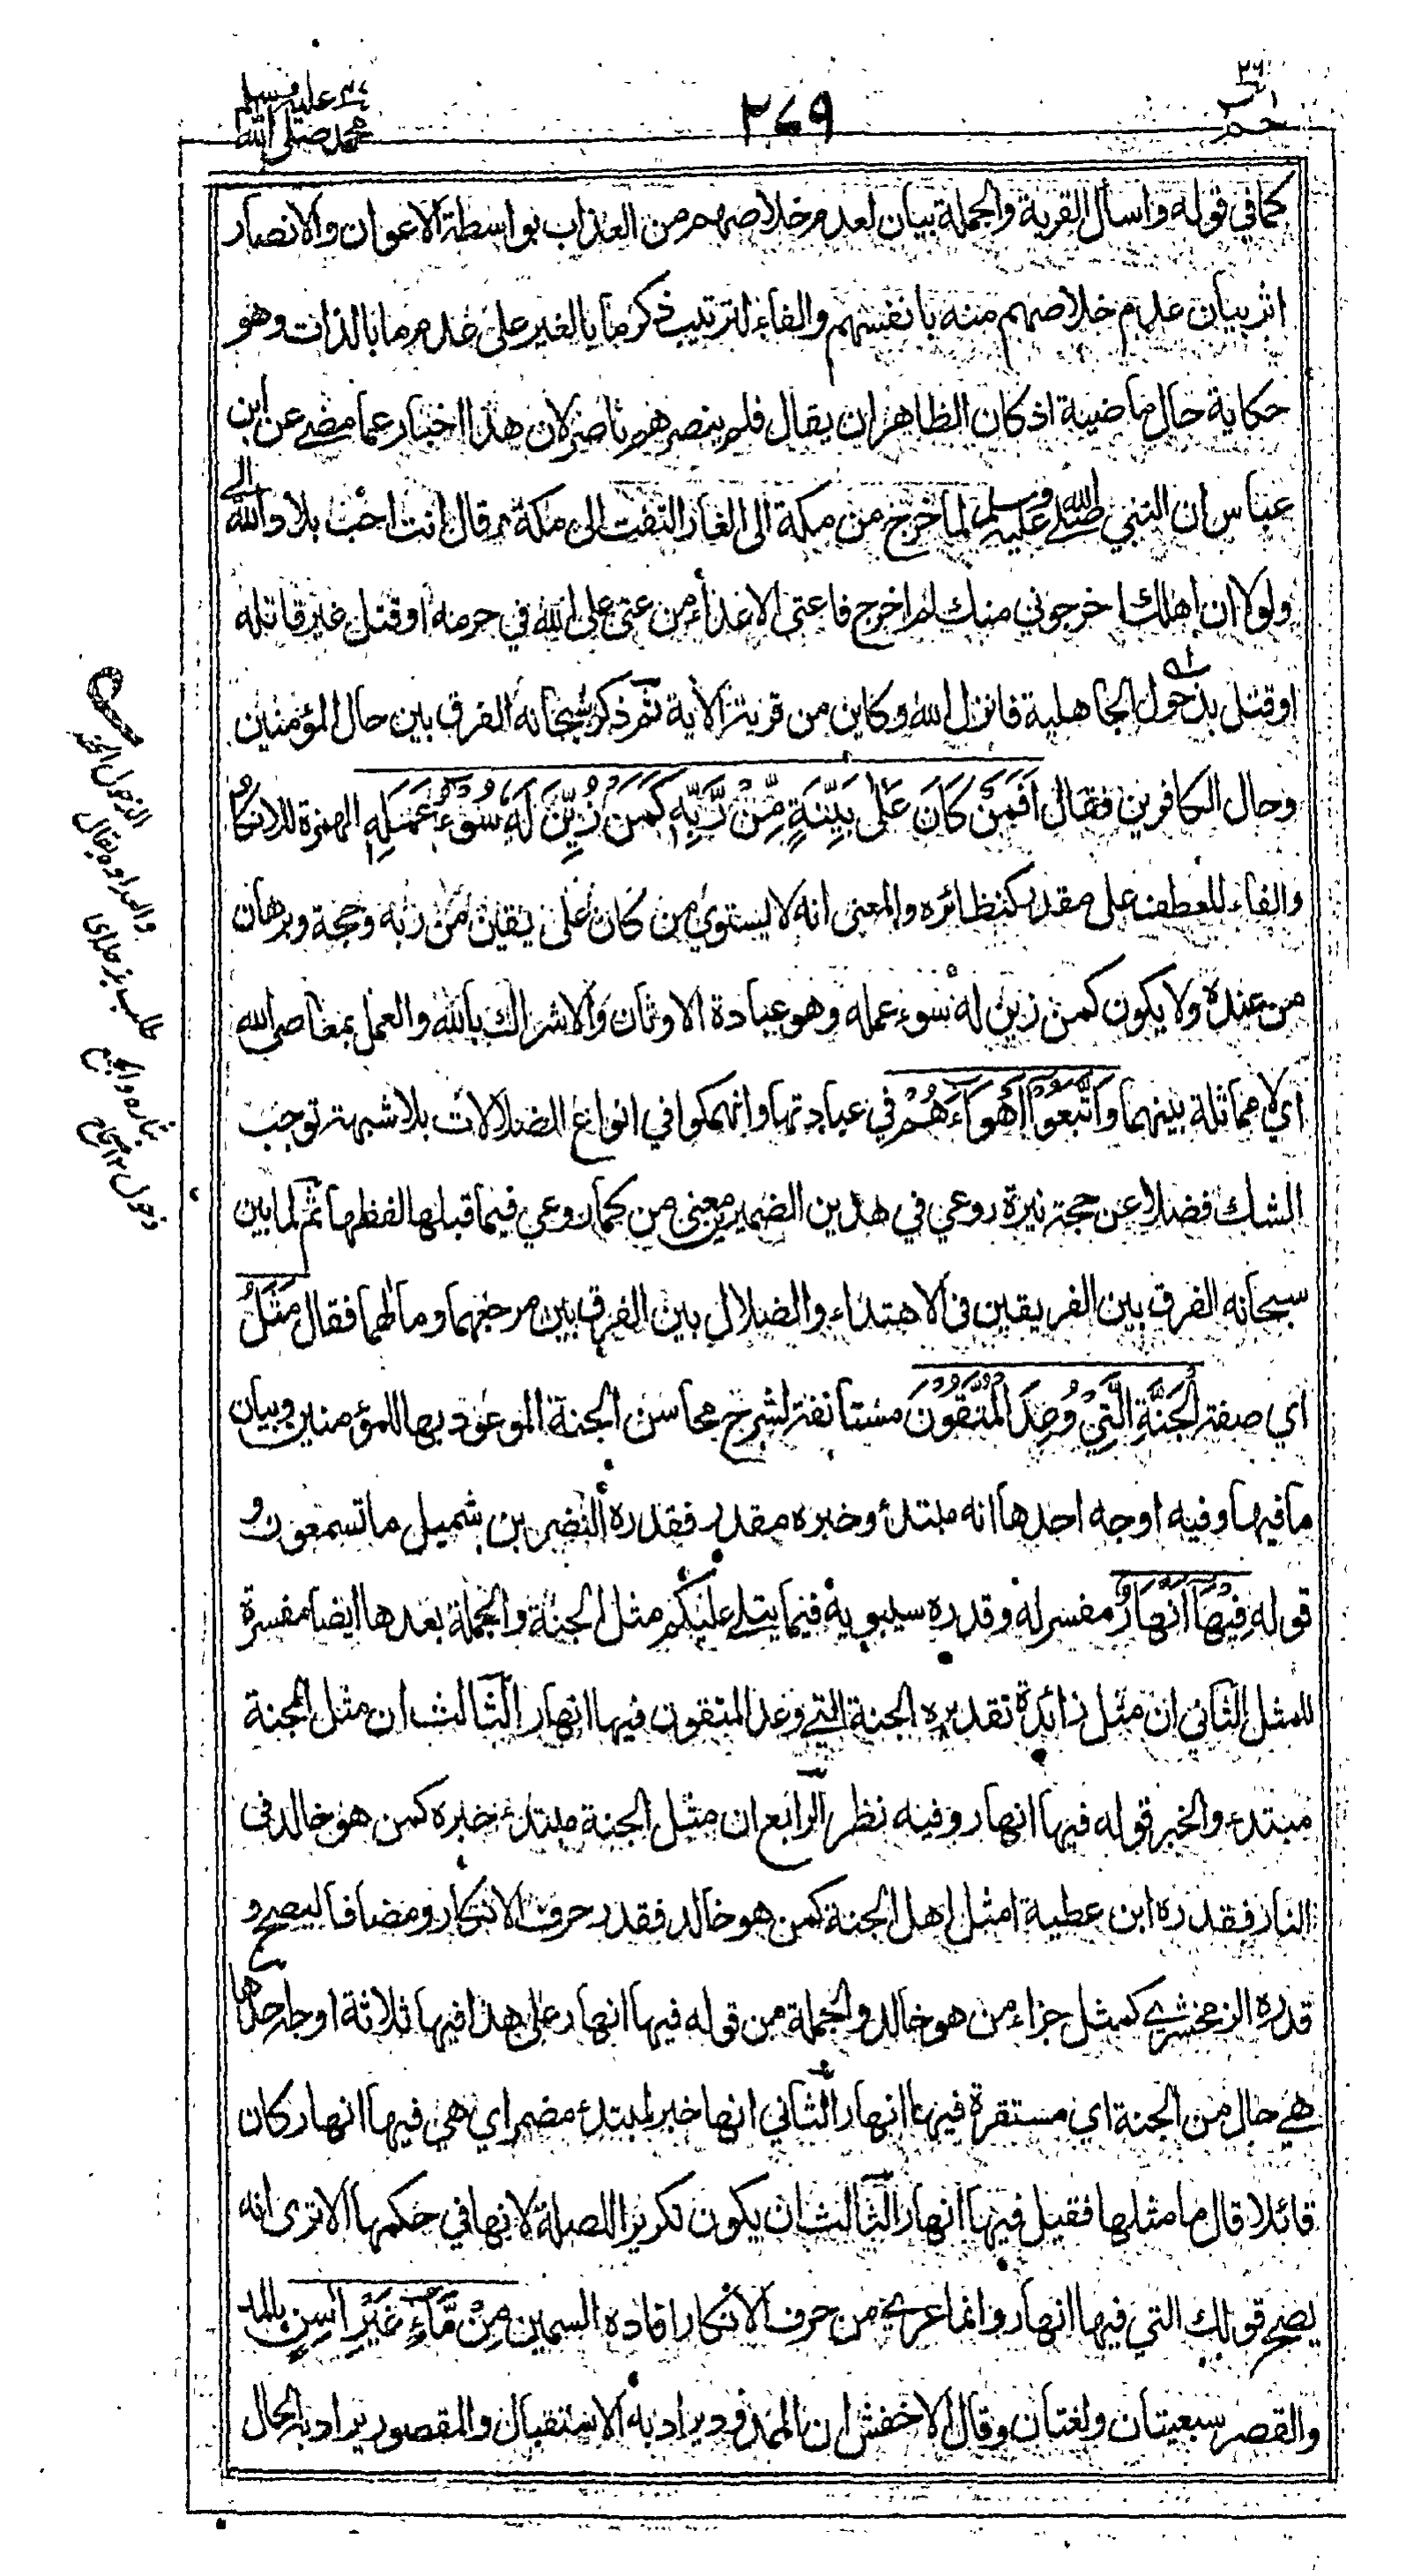 حم ٢٦
٢٧٩
محمد صلى الله عليه وسلم
كما في قوله واسأل القرية والجملة بيان لعدم خلاصهم من العذاب بواسطة الاعوان والانصار
اثر بيان عدم خلاصهم منه بانفسهم والفاء لترتيب ذكر ما بالغير على عدم ما بالذات وهو
حكاية حال ماضية اذ كان الظاهر ان يقال فلم ينصرهم ناصر لان هذا اخبار عما مضى عن ابن
عباس ان النبي صلى الله عليه وسلم لما خرج من مكة الى الغار التفت الى مكة و قال انت احب بلاد الله الى
ولولا ان اهلك اخرجوني منك لم اخرج فاعتى الاعداء من عتى على الله في حرمه او قتل غير قاتله
او قتل بذحول الجاهلية فانزل الله وكاين من قرية الأية ثم ذكر سبحانه الفرق بين حال المؤمنين
وحال الكافرين فقال أَفَمَنْ كَانَ عَلَى بَيِّنَةٍ مِّنْ رَّبِّهِ كَمَنْ زُيِّنَ لَهُ سُوْءُ عَمَلِهِ الهمزة للانكار
والفاء للعطف على مقدر كنظائره والمعنى انه لا يستوي من كان على يقين من ربه وحجة وبرهان
من عنده ولا يكون كمن زين له سوء عمله وهو عبادة الاوثان والاشراك بالله والعمل بمعاصي الله
اي لا مماثلة بينهما وَاتَّبَعُوْا أَهْوَاءَهُمْ في عبادتها وانهمكوا في انواع الضلالات بلا شبهة توجب
الشك فضلا عن حجة نيرة روعي في هذين الضميرين معنى من كما روعي فيما قبلهما لفظها ثم لما بين
سبحانه الفرق بين الفريقين فى الاهتداء والضلال بين الفرق بين مرجعهما ومآلهما فقال مَثَلُ
اي صفة الْجَنَّةِ الَّتِيْ وُعِدَ الْمُتَّقُوْنَ مستانفة لشرح محاسن الجنة الموعود بها للمؤمنين وبيان
ما فيها وفيه اوجه احدها انه مبتدأ وخبره مقدر فقدره النضر بن شميل ما تسمعون و
قوله فِيْهَا أَنْهَارٌ مفسر له وقدره سيبويه فيما يتلى عليكم مثل الجنة والجملة بعدها ايضا مفسرة
للمثل الثاني ان مثل زائدة تقديره الجنة التي وعد المتقون فيها انهار الثالث ان مثل الجنة
مبتدء والخبر قوله فيها انهار وفيه نظر الرابع ان مثل الجنة مبتدء خبره كمن هو خالد فى
النار فقدره ابن عطية امثل اهل الجنة كمن هو خالد فقدر حرف الانكار ومضافا ليصح و
قدره الزمخشري كمثل جزاء من هو خالد والجملة من قوله فيها انهار على هذا فيها ثلاثة اوجه احدها
هي حال من الجنة اي مستقرة فيها انهار الثاني انها خبر لمبتدء مضمر اي هي فيها انهار كان
قائلا قال ما مثلها فقيل فيها انهار الثالث ان يكون تكريرا للصلة لانها في حكمها الا ترى انه
يصح قولك التي فيها انهار وانما عري من حرف الانكار افاده السمين مِنْ مَّاءٍ غَيْرِ اٰسِنٍ بالمد
والقصر سبعيتان ولغتان وقال الاخفش ان الممدود يراد به الاستقبال والمقصور يراد به الحال
الذحول الحقد
والعداوة يقال
طلب بذحله اى
بثاره والجمع
ذحول ١٢